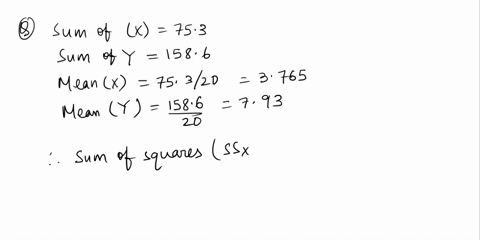 Q Sum of (X) = 75.3
Sum of Y = 158.6
Mean (X) = 75.3/20 = 3.765
Mean (Y) = 158.6/20 = 7.93
∴ Sum of squares (SSx